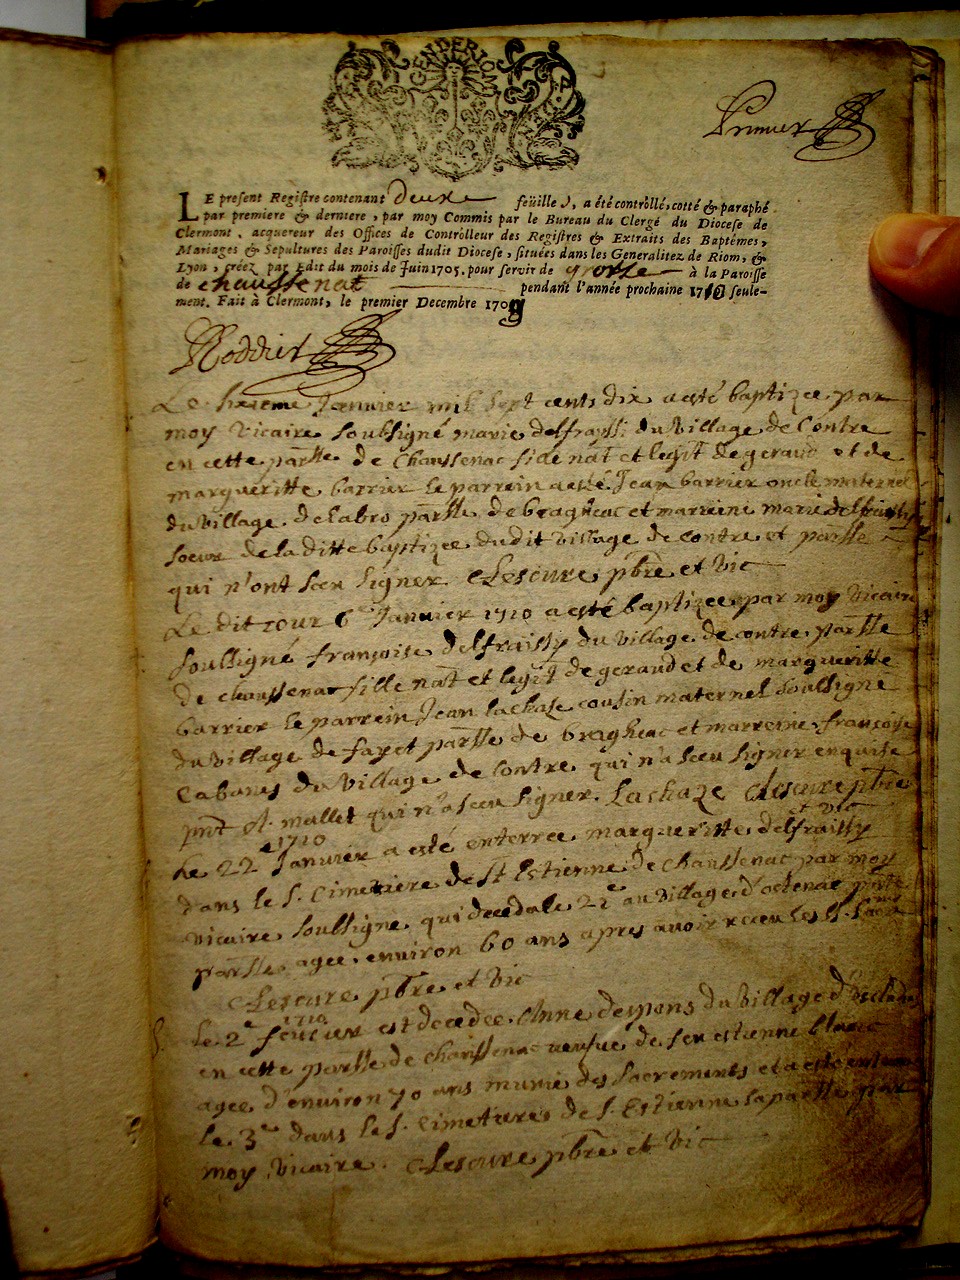 GENDE RIOM
Premier
LE present Registre contenant deux feüille s, a été contrôllé, cotté & paraphé
par premiere & derniere, par moy Commis par le Bureau du Clergé du Diocese de
Clermont, acquereur des Offices de Contrôlleur des Registres & Extraits des Baptêmes,
Mariages & Sepultures des Paroisses dudit Diocese, situées dans les Generalitez de Riom, &
Lyon, créez par Edit du mois de Juin 1705. pour servir de grosse à la Paroisse
de chaussenat pendant l'année prochaine 1710 seule-
ment. Fait à Clermont, le premier Decembre 1709
Roddier
Le sixieme Janvier mil sept cents dix a esté baptizée par
moy vicaire soubsigné marie delfraissi du village de Contre
en cette parsse de Chaussenac fille nat et legit de geraud et de
margueritte barrier le parrein a esté Jean barrier oncle maternel
du village de labro parsse de bragheac et marreine marie delfraissy
soeur de la ditte baptizée du dit village de contre et parsse
qui n'ont sceu signer Lescure pbre et vic
Le dit iour 6e Janvier 1710 a esté baptizée par moy vicaire
soubsigné françoise delfraissy du village de contre parsse
de chaussenac fille nat et legit de geraud et de margueritte
barrier le parrein Jean lachaze cousin maternel soubsigné
du village de fayet parsse de bragheac et marreine françoise
Cabanes du village de Contre qui n'a sceu signer enquise
pnt A. mallet qui n'a sceu signer. Lachaze Lescure pbre
et vic
Le 22e Janvier 1710 a esté enterree margueritte delfraissy
dans le S. Cimetiere de St Estienne de Chaussenac par moy
vicaire soubsigne qui deceda le 21e au village d'ostenac
parsse agee environ 60 ans apres avoir receu les Sts Sacr
Lescure pbre et vic
Le 2e feuvrier 1710 est decedee Anne despons du village
en cette parsse de chaussenac veufve de feu estienne
agee d'environ 70 ans munie des sacrements et a esté enterree
Le 3me dans le S. Cimetiere de S. Estienne la parsse par
moy vicaire. Lescure pbre et vic